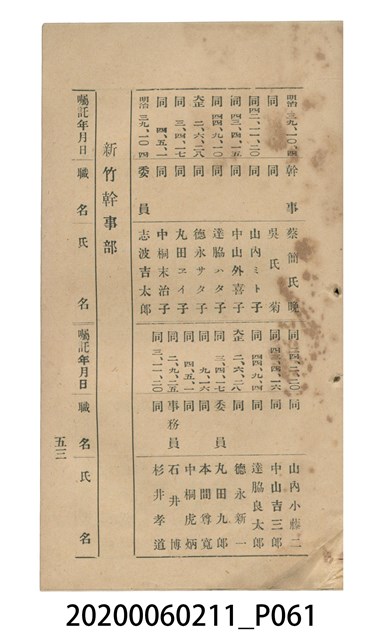 明治三九、一〇、四 幹事 蔡簡氏晚
同 同 吳氏菊
同四二、一一、二〇 同 山內ミト子
同四三、四、一五 同 中山外喜子
同四四、九、一〇 同 達脇ハタ子
大正二、六、二八 同 德永サタ子
同三、四、一七 同 丸田ヱイ子
同四、五、一 同 中桐末治子
明治三九、一〇、四 委員 志波吉太郎
同四二、二、二〇 同 山內小藤二
同四三、四、一六 同 中山吉三郎
同四四、九、四 同 達脇良太郎
大正二、六、二八 同 德永新一
同三、四、一七 委員 丸田九郎
同九、一六 同 本間尊寬
同四、五、一 同 中桐虎炳
同二、九、二五 事務員 石井博
同三、一一、二〇 同 杉井孝道
新竹幹事部
囑託年月日 職名 氏名
囑託年月日 職名 氏名
五三
20200060211_P061